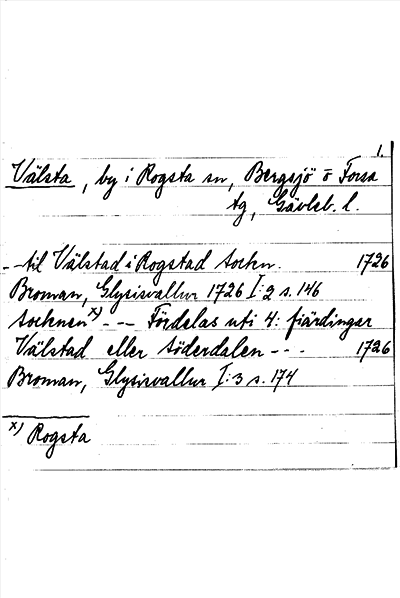 1.
Välsta, by i Rogsta sn, Bergsjö o Forsa
tg, Gävleb. l.
- - til Välstad i Rogstad Sockn. 1726
Broman, Glysisvallur 1726 I:2 s. 146
Socknen x) - - - Fördelas uti 4: fiärdingar
Välstad eller Söderdalen - - - 1726
Broman, Glysisvallur I:3 s. 174
x) Rogsta